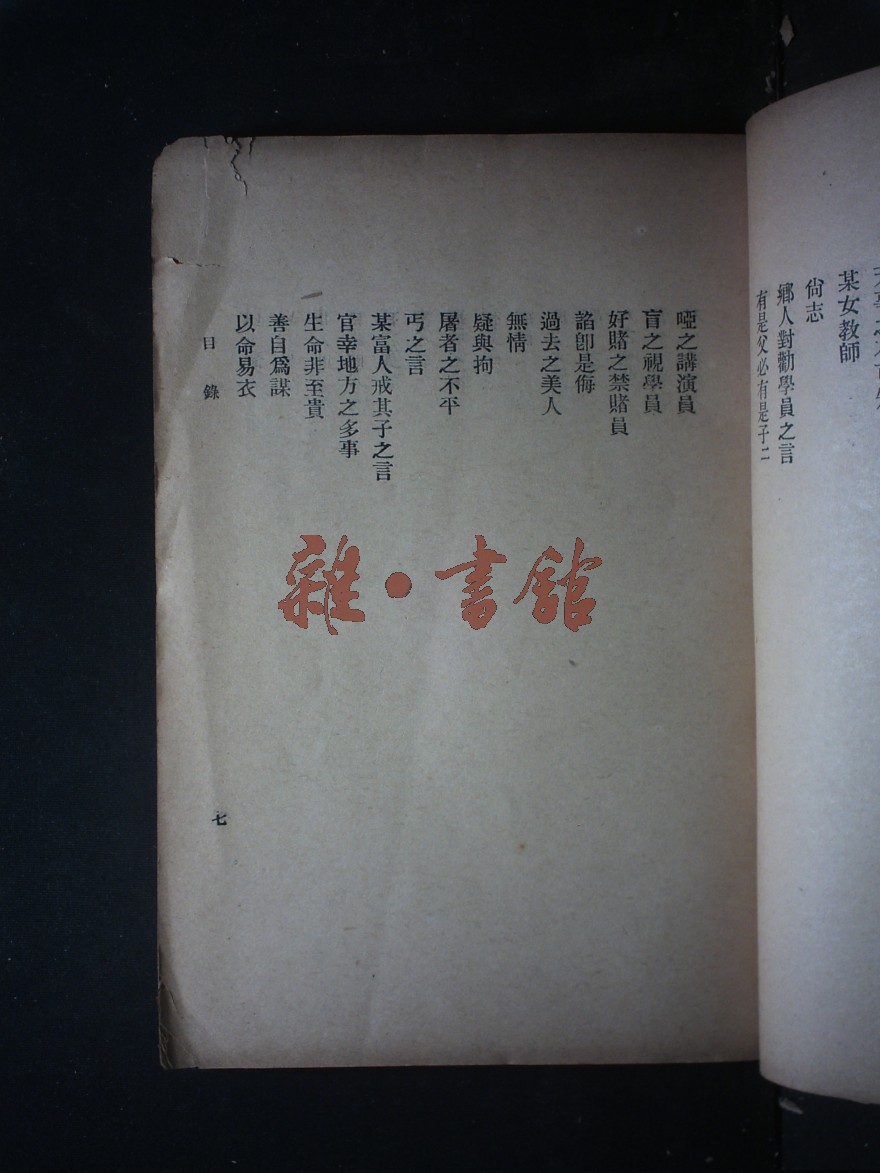 某女教師
尙志
鄉人對勸學員之言
有是父必有是子二
啞之講演員
盲之視學員
好賭之禁賭員
諂卽是侮
過去之美人
無情
疑與拘
屠者之不平
丐之言
某富人戒其子之言
官幸地方之多事
生命非至貴
善自爲謀
以命易衣
目錄
七
雜·書館